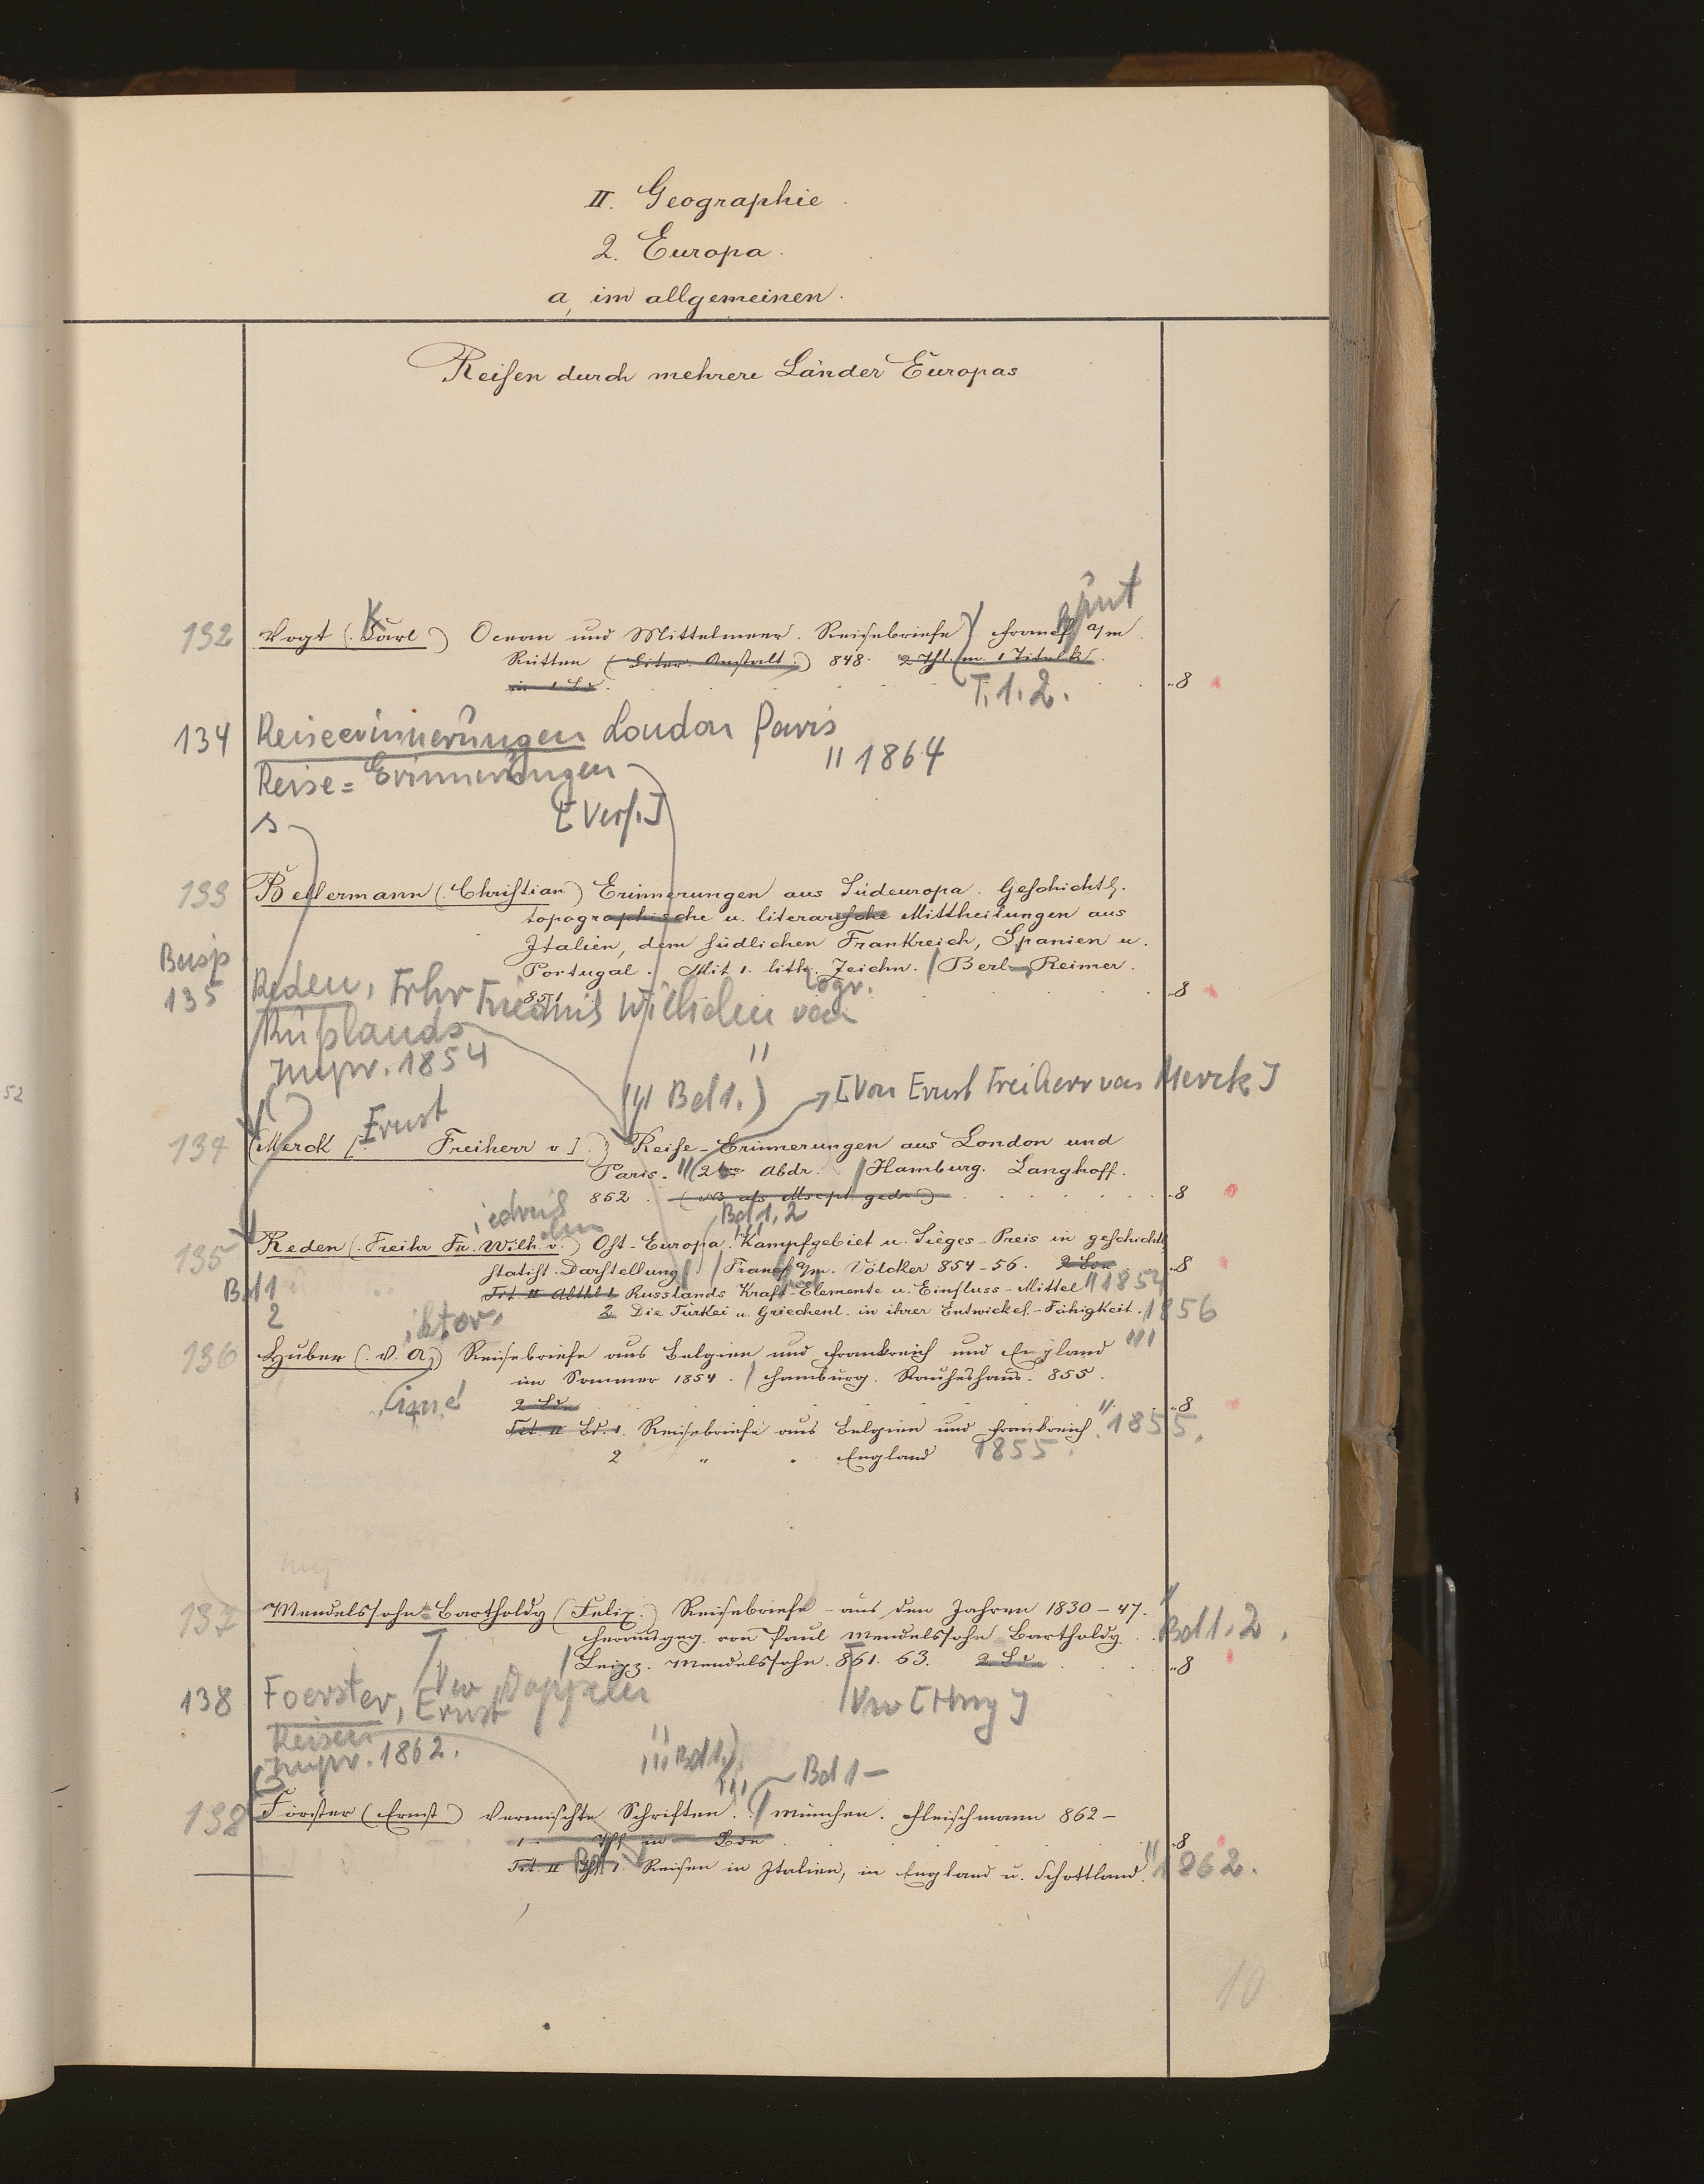 II. Geographie.
2. Europa.
a, im allgemeinen.
Reisen durch mehrere Länder Europas
132 Vogt (Carl) K Ocean und Mittelmeer. Reisebriefe / Francf. a/m.
Rütten (Liter. Anstalt.) 848. 2 Thl. m. 1 Titelk.
in 1 Bd. T. 1. 2. 8
134 Reiseerinnerungen London Paris
Reise = Erinnerungen " 1864
s [Verf.]
133 Bellermann (Christian) Erinnerungen aus Südeuropa. Geschichtl.
topographische u. literarische Mittheilungen aus
Italien, dem südlichen Frankreich, Spanien u.
Portugal. Mit 1. lith. Zeichn. / Berl. Reimer.
851 8
135 Reden, Frhr Friedrich Wilhelm von
Rußlands
1854
(Bd 1.) [Von Ernst Freiherr von Merck]
134 (Merck [. Ernst Freiherr v].) Reise-Erinnerungen aus London und
Paris. (2te Abdr. / Hamburg. Langhoff.
852. (NB als Mscpt gedr.) 8
Bd 1, 2
135 Reden (Freihr Fr. Wilh. v.) Ost-Europa. Kampfgebiet u. Sieges-Preis in geschichtl
statist. Darstellung. / Francf a/m. Völcker 854-56. 2 Bde 8
Bd 1 Tit. II Abthl 1. Russlands Kraft-Elemente u. Einfluss-Mittel " 1854
2 2 Die Türkei u. Griechenl. in ihrer Entwickel.-Fähigkeit. 1856
iktor
136 Huber (V. A.) Reisebriefe aus Belgien und Frankreich und England
imé im Sommer 1854. / Hamburg. Rauheshaus. 855.
2 Bde 8
Tit. II Bd. 1. Reisebriefe aus Belgien und Frankreich. " 1855.
2 " " England 1855.
137 Mendelssohn-Bartholdy (Felix.) Reisebriefe - aus den Jahren 1830-47.
Herausgeg. von Paul Mendelssohn Bartholdy. Bd 1. 2.
/ Leipz. Mendelssohn. 861. 63. 2 Bde 8
138 Foerster, Ernst
Reisen
1862.
Bd 1.) Bd 1 -
138 Förster (Ernst) Vermischte Schriften. / München. Fleischmann 862-
1 - Thl in Bde 8
Tit. II Thl 1. Bd Reisen in Italien, in England u. Schottland. " 1862.
10